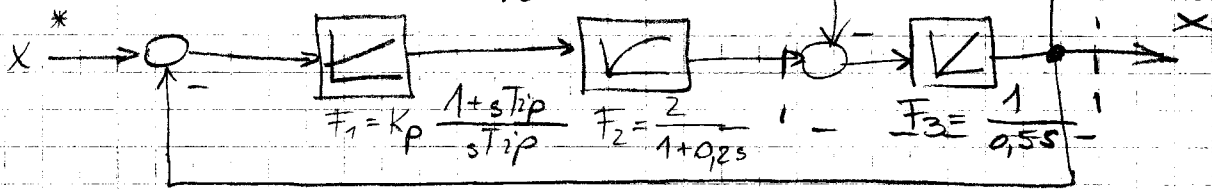 X* X
-
F₁ = Kp (1+sTip)/(sTip) F₂ = 2/(1+0,2s) F3 = 1/(0,5s)
-